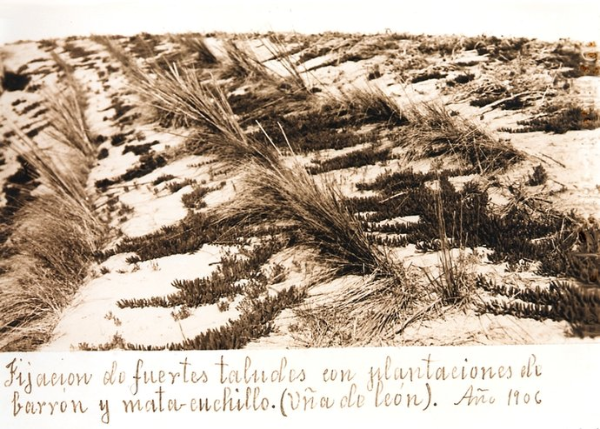 Fijacion de fuertes taludes con plantaciones de
barron y mata-cuchillo. (Uña de león). Año 1906